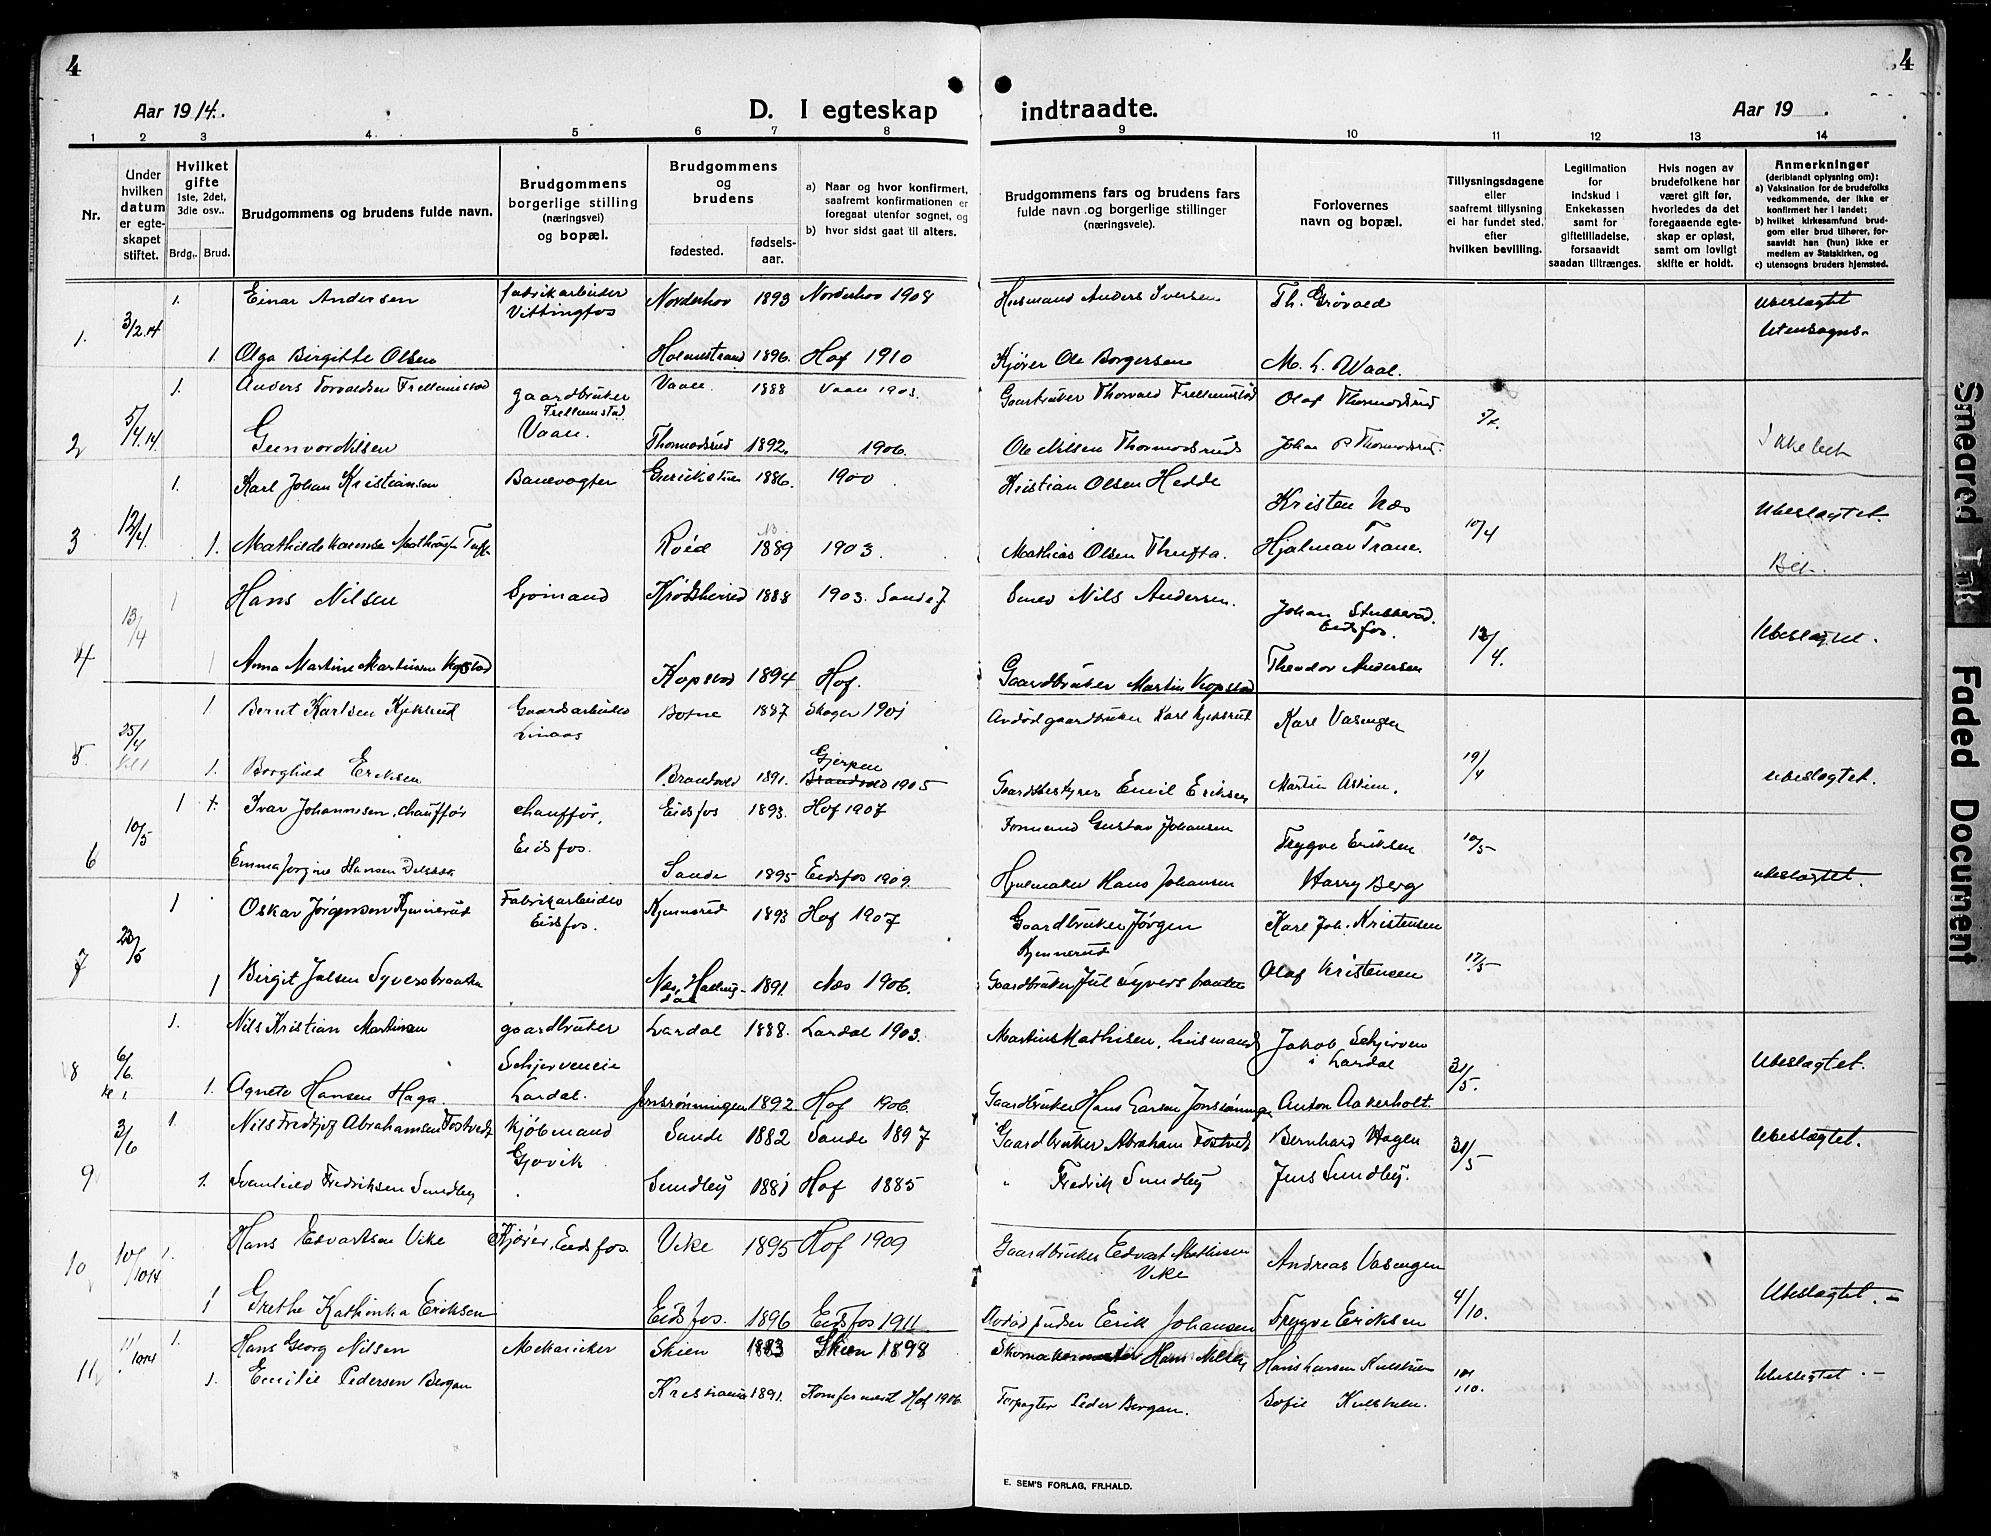 4
4
Aar 1914.
D. I egteskap indtraadte.
Aar 19 .
1 2 3 4 5 6 7 8 9 10 11 12 13 14
Nr.
Under
hvilken
datum
er egte-
skapet
stiftet.
Hvilket
gifte
1ste, 2det,
3die osv..
Brdg. Brud.
Brudgommens og brudens fulde navn.
Brudgommens
borgerlige stilling
(næringsvei)
og bopæl.
Brudgommens
og
brudens
fødested.
fødsels-
aar.
a) Naar og hvor konfirmert,
saafremt konfirmationen er
foregaat utenfor sognet, og
b) hvor sidst gaat til alters.
Brudgommens fars og brudens fars
fulde navn og borgerlige stillinger
(næringsveie).
Forlovernes
navn og bopæl.
Tillysningsdagene
eller
saafremt tillysning
ei har fundet sted,
efter
hvilken bevilling.
Legitimation
for
indskud i
Enkekassen
samt for
giftetilladelse,
forsaavidt
saadan tiltrænges.
Hvis nogen av
brudefolkene har
været gift før,
hvorledes da det
foregaaende egte-
skap er opløst,
samt om lovligt
skifte er holdt.
Anmerkninger
(deriblandt oplysning om):
a) Vaksination for de brudefolks
vedkommende, der ikke er
konfirmert her i landet;
b) hvilket kirkesamfund brud-
gom eller brud tilhører, for-
saavidt han (hun) ikke er
medlem av Statskirken, og
c) utensogns bruders hjemsted.
1. 3/2 14 1. Einar Andersen fabrikarbeider Vittingfos Norderhov 1893 Norderhov 1908 Husmand Anders Iversen Th. Grøvold Ubeslægtet
Utensogns-
1. Olga Birgitte Olsen Holmestrand 1896. Hof 1910 Kjører Ole Borgersen M. L. Waal.
2 5/4.14 1. Anders Torvaldsen Frellumstad gaardbruker Frellumstad Vaale. Vaale 1888 Vaale 1903. Gaardbruker Thorvald Frellumstad Olaf Thormodsrud
Gunvor Nilsen Thormodsrud 1892. 1906. Ole Nilsen Thormodsrud Johan P Thormodsrud. Ikke besl.
3 12/4. 1. Karl Johan Kristiansen Banevogter 1886. 1900 Kristian Olsen Hedde Kristen Næs 10/4 Ubeslægtet.
1. Mathilde Røed 1889 1903. Mathias Olsen Thufta. Hjalmar Trane.
4 13/4 1 Hans Nilsen Sjømand Krødsherred 1888 1903. Sandef Smed Nils Andersen. Johan Stubberød. Eidsfos. 13/4. Ubeslægtet.
1 Anna Martine Martinsen Kopstad Kopstad 1894 Hof. Gaardbruker Martin Kopstad Theodor Andersen
5. 25/4 1 Bernt Karlsen Kjeksrud Gaardsarbeider Linaas Botne 1887 Skoger 1901 Avdød gaardbruker Karl Kjeksrud Karl Vasengen 19/4
1. Borghild Eriksen Brandval 1891. Gjerpen 1905 Gaardbestyrer Emil Eriksen Martin Askim. Ubeslægtet.
6 10/5 1 1. Ivar Johannesen, chauffør chauffør, Eidsfos. Eidsfos 1893. Hof 1907 Formand Gustav Johansen Trygve Eriksen 10/5
Emma Jorgine Hansen Sande 1895 Eidsfos 1909. Hjulmaker Hans Johansen Harry Berg Ubeslægtet.
7 20/5 1 Oskar Jørgensen Kjennerud Fabrikarbeider Eidsfos. Kjennerud 1893 Hof 1907 Gaardbruker Jørgen Kjennerud Karl Joh. Kristensen 17/5
1 Birgit Julsen Syversbraaten Næs, Halling-dal 1891. Næs 1906. Gaardbruker Jul Syversbraaten Olaf Kristensen
8 6/6. 1. Nils Kristian Martinsen gaardbruker Schjerveneie Lardal. Lardal 1888. Lardal 1903. Martins Mathisen, husmand Jakob Schjerven i Lardal 31/5. Ubeslægtet.
1. Agnete Hansen Haga Jonsrønningen 1892 Hof 1906. Gaardbruker Hans Larsen Jonsrønningen Anton Aakerholt.
9 3/6 1. Nils Fredtjof Abrahamsen Fostvedt Kjøbmand Gjøvik Sande 1882 Sande 1897 Gaardbruker Abraham Fostvedt Bernhard Hagen 31/5 Ubeslægtet.
1. Svanhild Fredriksen Sundbey Sundbey 1881 Hof 1885 " Fredrik Sundbey Jens Sundbey.
10 10/10 14 1. Hans Edvartsen Vike Kjører, Eidsfos. Vike 1895 Hof 1909 Gaardbruker Edvart Mathisen Vike Andreas Vasengen
1 Grethe Kathinka Eriksen Eidsfos. 1896 Eidsfos 1911. Avdød pudser Erik Johansen Trygve Eriksen 4/10. Ubeslægtet. -
11 11/10 14 1. Hans Georg Nilsen Mekaniker Skien 1883 Skien 1898 Skomakermester Hans Nilsen Hans Larsen 10. Ubeslegtet -
1. Emilie Pedersen Bergan Kristiania 1891. Konfirmert Hof 1906. Forpagter Peder Bergan. Sofie
E. SEM'S FORLAG, FR.HALD.
Smeared Ink
Faded Document